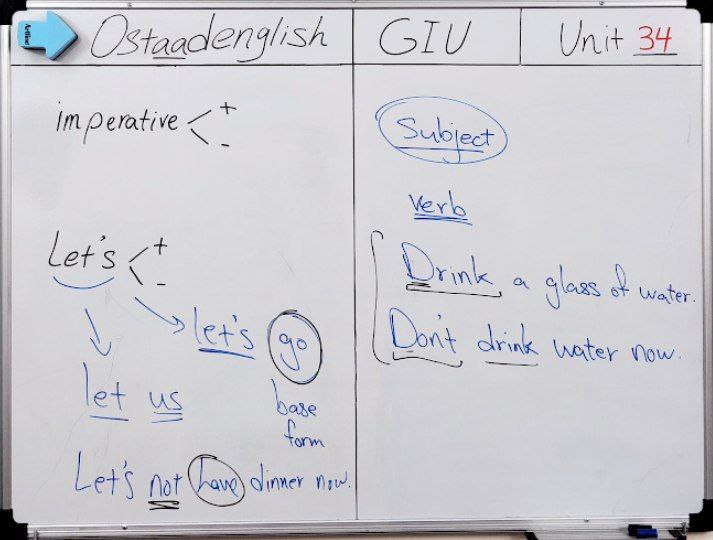 Ostaadenglish
GIU
Unit 34
imperative < + -
Let's < + -
let's go
base
form
let us
Let's not have dinner now.
Subject
verb
Drink a glass of water.
Don't drink water now.